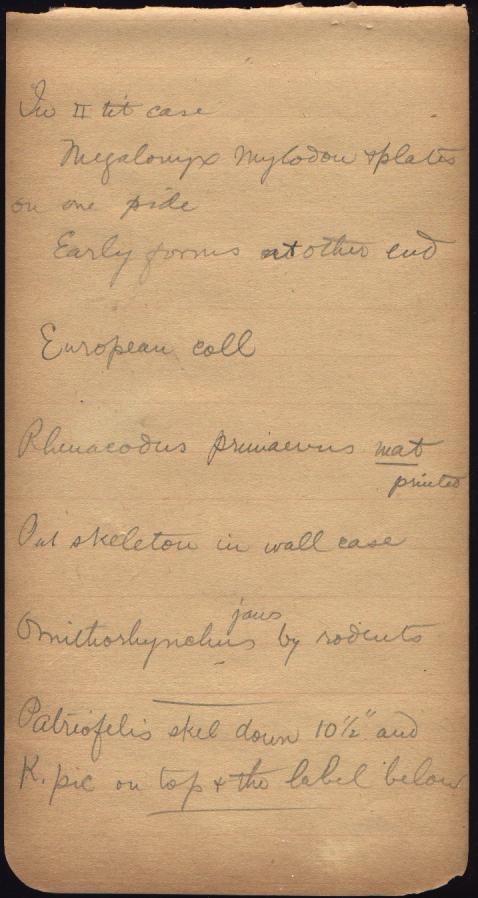 In II tit case
Megalonyx Mylodon & plates
on one side
Early forms at other end
European coll
Phenacodus primaevus mat
printed
Put skeleton in wall case
jaws
Ornithorhynchus by rodents
Patriofelis skel down 10½" and
K. pic on top & the label below